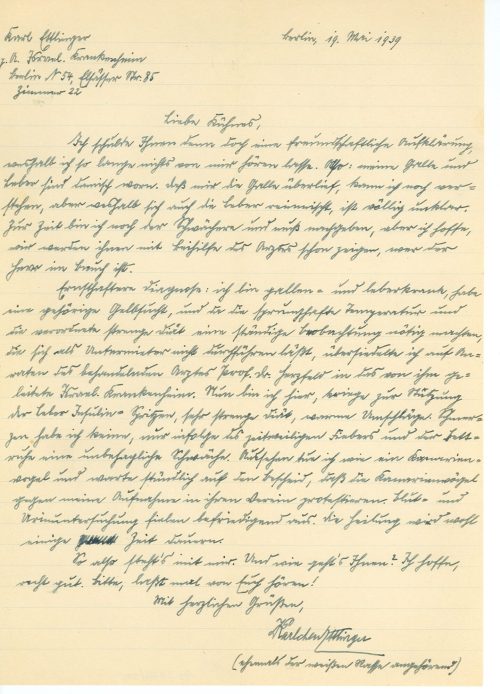 Karl Ettlinger
z. Zt. Israel. Krankenheim
Berlin N 54, Elsässer Str. 85
Zimmer 22
Berlin, 19. Mai 1939
Liebe Kühnes,
Ich schulde Ihnen denn doch eine freundschaftliche Aufklärung,
weshalb ich so lange nichts von mir hören lasse. Also: meine Galle und
Leber sind daran. Daß mir die Galle überlief, kann ich noch ver-
stehen, aber weshalb sich auch die Leber reinmischt, ist völlig unklar.
Zur Zeit bin ich noch der Schwächere und muß nachgeben, aber ich hoffe,
wir werden ihnen mit Beihilfe des Arztes schon zeigen, wer der
Herr im Bauch ist.
Ernsthaftere Diagnose: ich bin gallen- und leberkrank, habe
eine gehörige Gelbsucht, und da die sprunghafte Temperatur und
die verordnete strenge Diät eine ständige Beobachtung nötig machten,
die sich als Untermieter nicht durchführen läßt, übersiedelte ich auf An-
raten des behandelnden Arztes Prof. Dr. Herzfeld in das von ihm ge-
leitete Israel. Krankenheim. Nun bin ich hier, kriege zur Stützung
der Leber Insulin-Spritzen, sehr strenge Diät, warme Umschläge. Schmer-
zen habe ich keine, nur infolge des zeitweiligen Fiebers und der Bett-
ruhe eine unbehagliche Schwäche. Aussehen tu ich wie ein Kanarien-
vogel und warte stündlich auf den Bescheid, daß die Kanarienvögel
gegen meine Aufnahme in ihren Verein protestieren. Blut- und
Urinuntersuchung fielen befriedigend aus. Die Heilung wird wohl
einige Zeit dauern.
So also steht's mit mir. Und wie geht's Ihnen? Ich hoffe,
recht gut. Bitte, laßt mal von Euch hören!
Mit herzlichen Grüßen,
Karlchen Ettlinger
(ehemals der weißen Rasse angehörend)